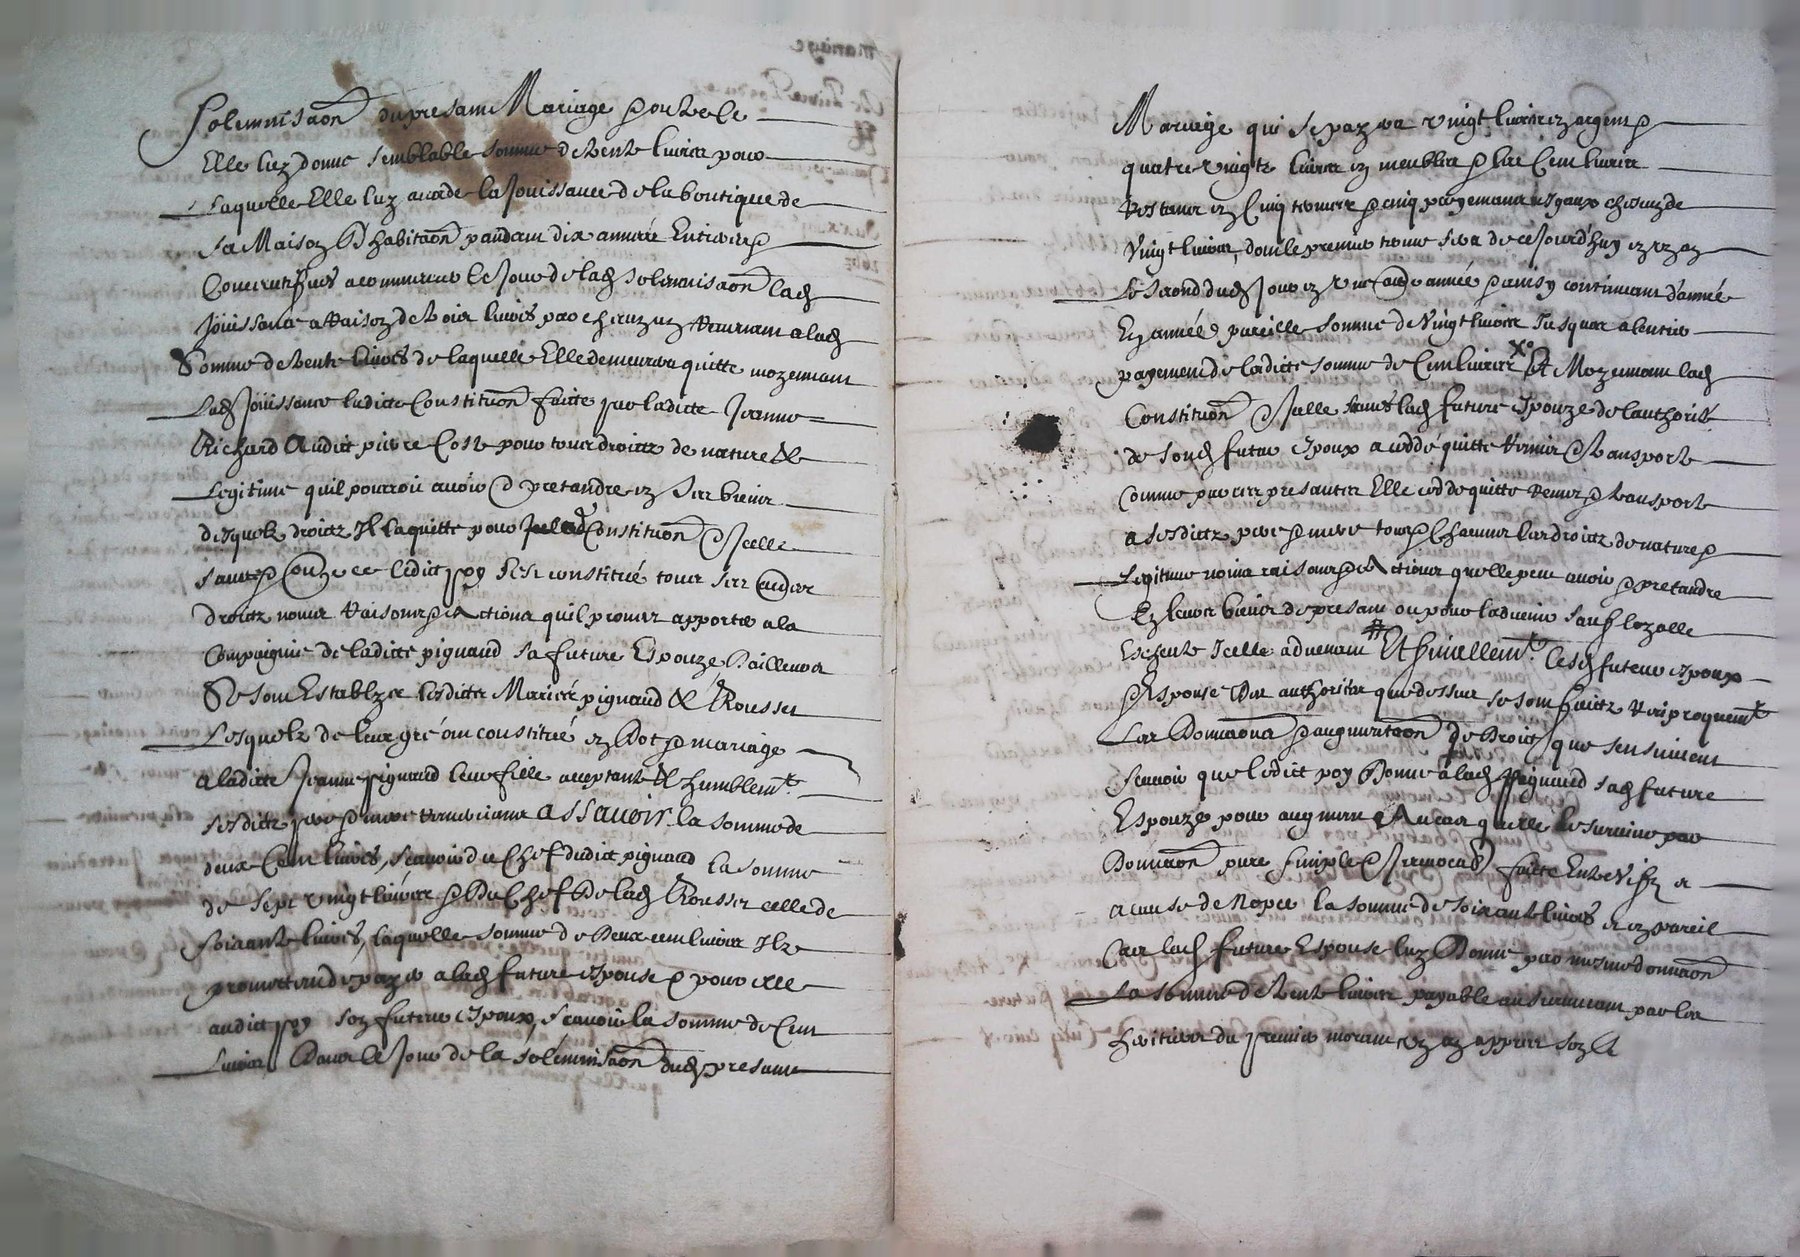 Solemnisaon du presant Mariage pour le
Elle luy donne semblable somme de trente livres pour
Laquelle Elle luy accorde la Jouissance de la boutique de
sa Maison d'habitaon pandant dix années Entieres
a commencer le Jour de lad solemnisaon lad
Jouissance a Raison de trois livres par chacun an revenant a lad
Somme de trente livres de laquelle Elle demeurera quitte moyennant
Lad Jouissance ladicte Constituon faicte par ladicte Jeanne
Richard Audict pierre pour tous droictz de nature &
Legitime quil pourroit avoir & pretandre en ses biens
desquelz droictz Il la quitte pour Constituon & Icelle
ledict poy sest constitué tous ses
droictz noms Raisons & Actions quil promet apporter a la
Compaignie de ladicte pignaud sa future Espouze Dailleurs
Se sont Establys lesdictz Mariés pignaud & Rousset
Lesquelz de leur gré ont constitué en Dot & mariage
a ladicte Jeanne pignaud leur fille acceptante & humblemt
sesdictz pere & mere remerciant assavoir la somme de
deux Cent livres, scavoir du Chef dudict pignaud la somme
de sept vingt livres & du Chef de lad Rousset celle de
soixante livres, laquelle somme de Deux cent livres Ilz
promettent de payer a lad future espouse & pour elle
audict poy son futur espoux, scavoir la somme de Cent
Livres Dans le Jour de la solemnisaon dud presant
Mariage qui sera vingt livres en argent &
quatre vingtz livres en meubles & les Cent livres
Restans en Cinq termes & cinq payemans esgaux chascun de
Vingt livres, dont le premier terme sera de ce Jourdhuy en un an
Le second dud Jour en une année & ainsy continuant d'année
En année pareille somme de Vingt livres Jusques a lentier
payement de ladicte somme de Cent livres Xo Et Moyennant lad
Constituon & Icelle lad future espouze de lauthorité
de sond futur espoux a ceddé quitte Remis & transporte
Comme par ces presantes Elle cedde quitte Remet & transporte
a sesdictz pere & mere tous & Chacuns les droictz de nature &
Legitime noms raisons & Actions quelle peut avoir & pretandre
Ez leurs biens de presant ou pour ladvenir sauf loyalle
Escheute Icelle advenant # Et finallemt Lesd futeurs espoux
& Espouse de authorité que dessus se sont faictz Reciproquemt
Les Donnaons & augmentaon de Droict que sensuivent
Scavoir que ledict poy Donne a lad pignaud sad future
Espouze pour augment & Au cas quelle le survive par
Donnaon pure simple & Irrevocable faicte Entre vifz &
a cause de Nopces la somme de soixante livres & en pareil
Cas lad future Espouse luy Donne par mesme donnaon
La Somme de trente livres payable au survivant par les
heritiers du premier morant